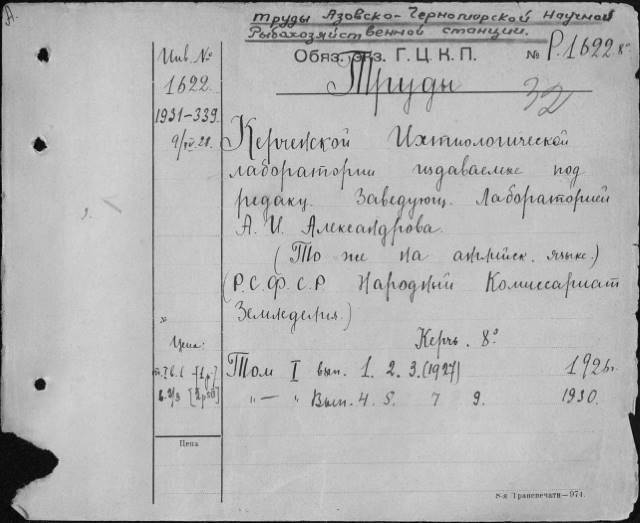 А.
Труды Азовско-Черноморской Научной
Рыбохозяйственной станции.
Обяз. экз. Г.Ц.К.П. № Р.1622 8°
Труды
32
Инв. №
1622
1931-339
Керченской Ихтиологической
лаборатории издаваемые под
редакц. Заведующ. Лабораторией
А. И. Александрова.
(То же на английск. языке.)
(Р.С.Ф.С.Р Народный Комиссариат
Земледелия.)
Керчь. 8°
Цена:
Том I вып. 1. 2. 3. (1927) 1926г.
„ — „ Вып. 4. 5. 7 9. 1930.
Цена
8-я Транспечати—974.